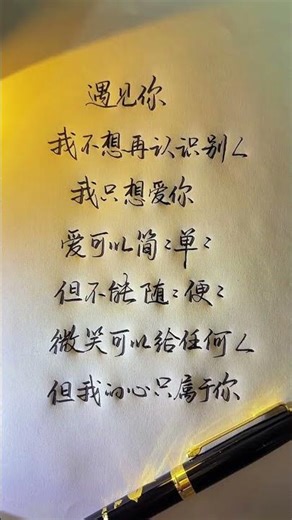 遇见你
我不想再认识别人
我只想爱你
爱可以简〻单〻
但不能随〻便〻
微笑可以给任何人
但我的心只属于你